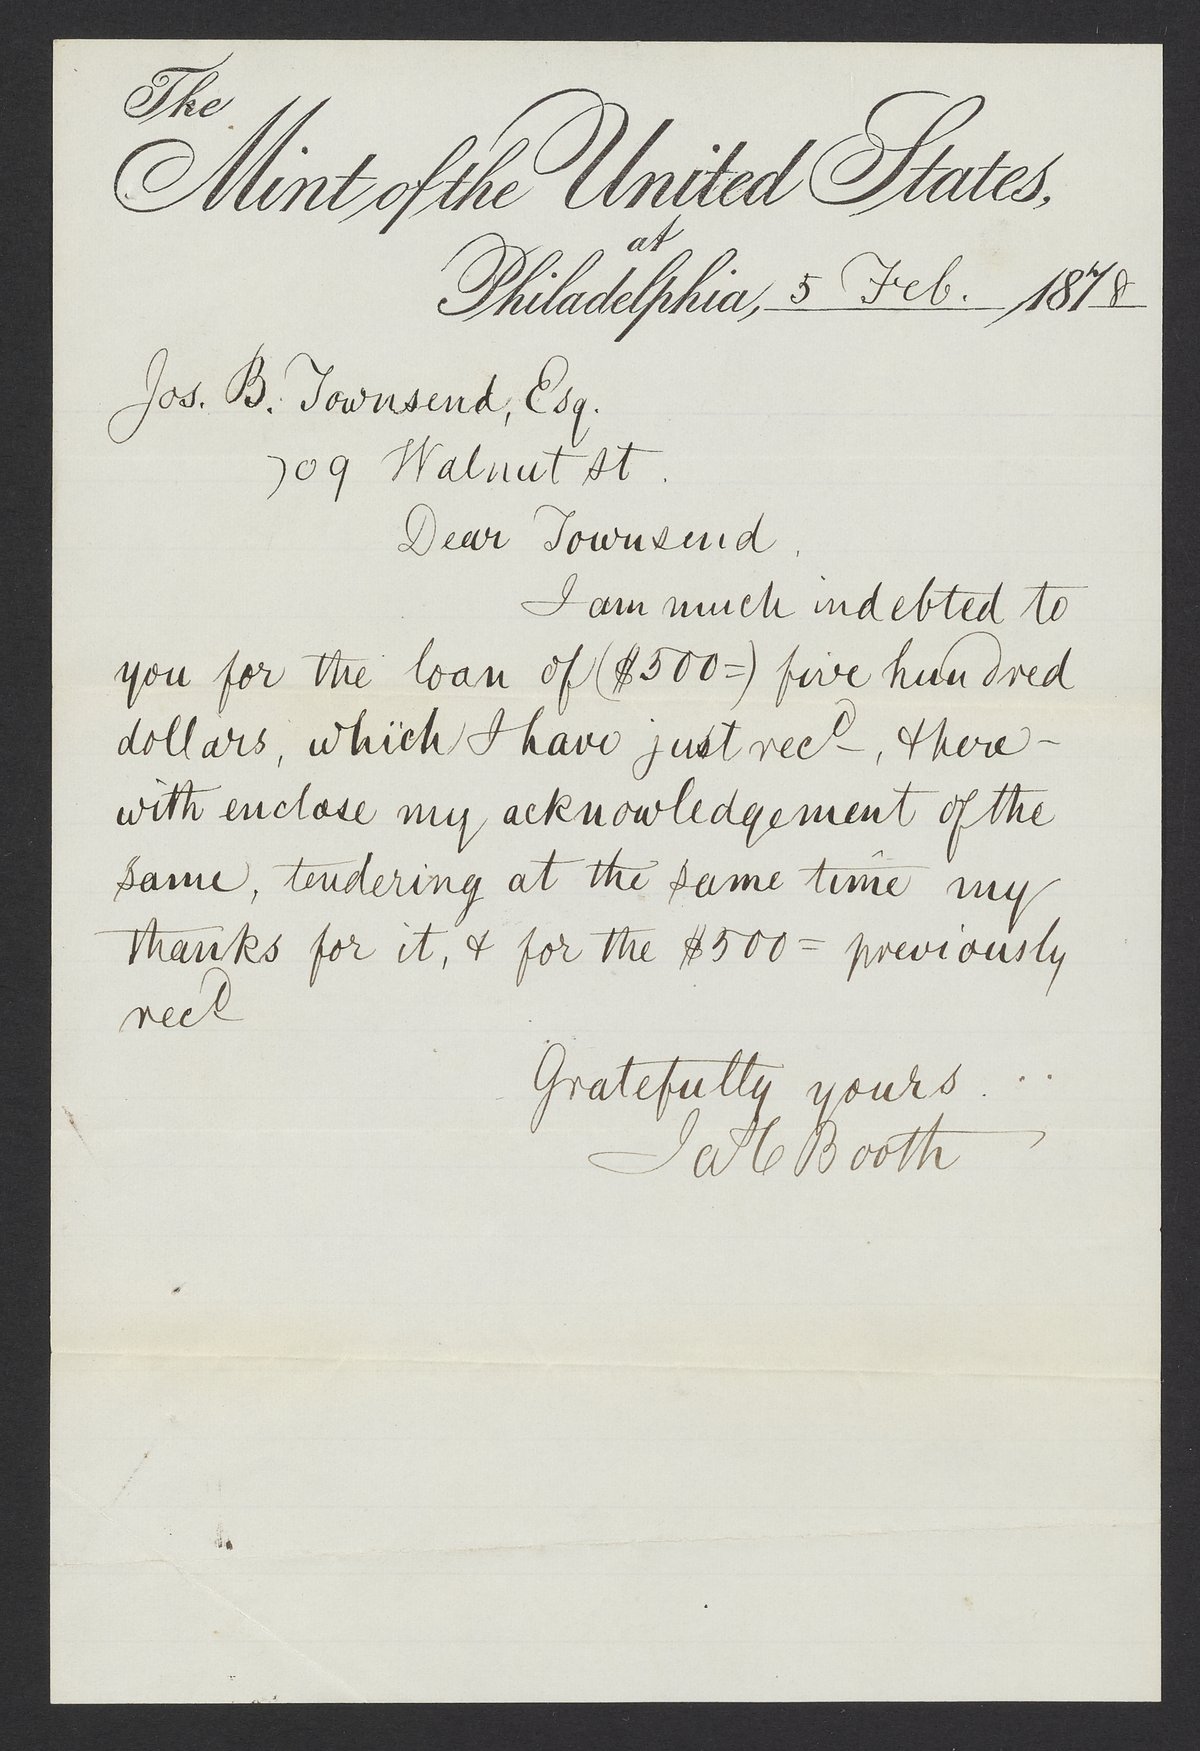 The
Mint of the United States,
at
Philadelphia, 5 Feb. 1878
Jos. B. Townsend, Esq.
709 Walnut St.
Dear Townsend,
I am much indebted to
you for the loan of ($500=) five hundred
dollars, which I have just recd, & here-
with enclose my acknowledgement of the
same, tendering at the same time my
thanks for it, & for the $500= previously
recd
Gratefully yours.
Ja C Booth